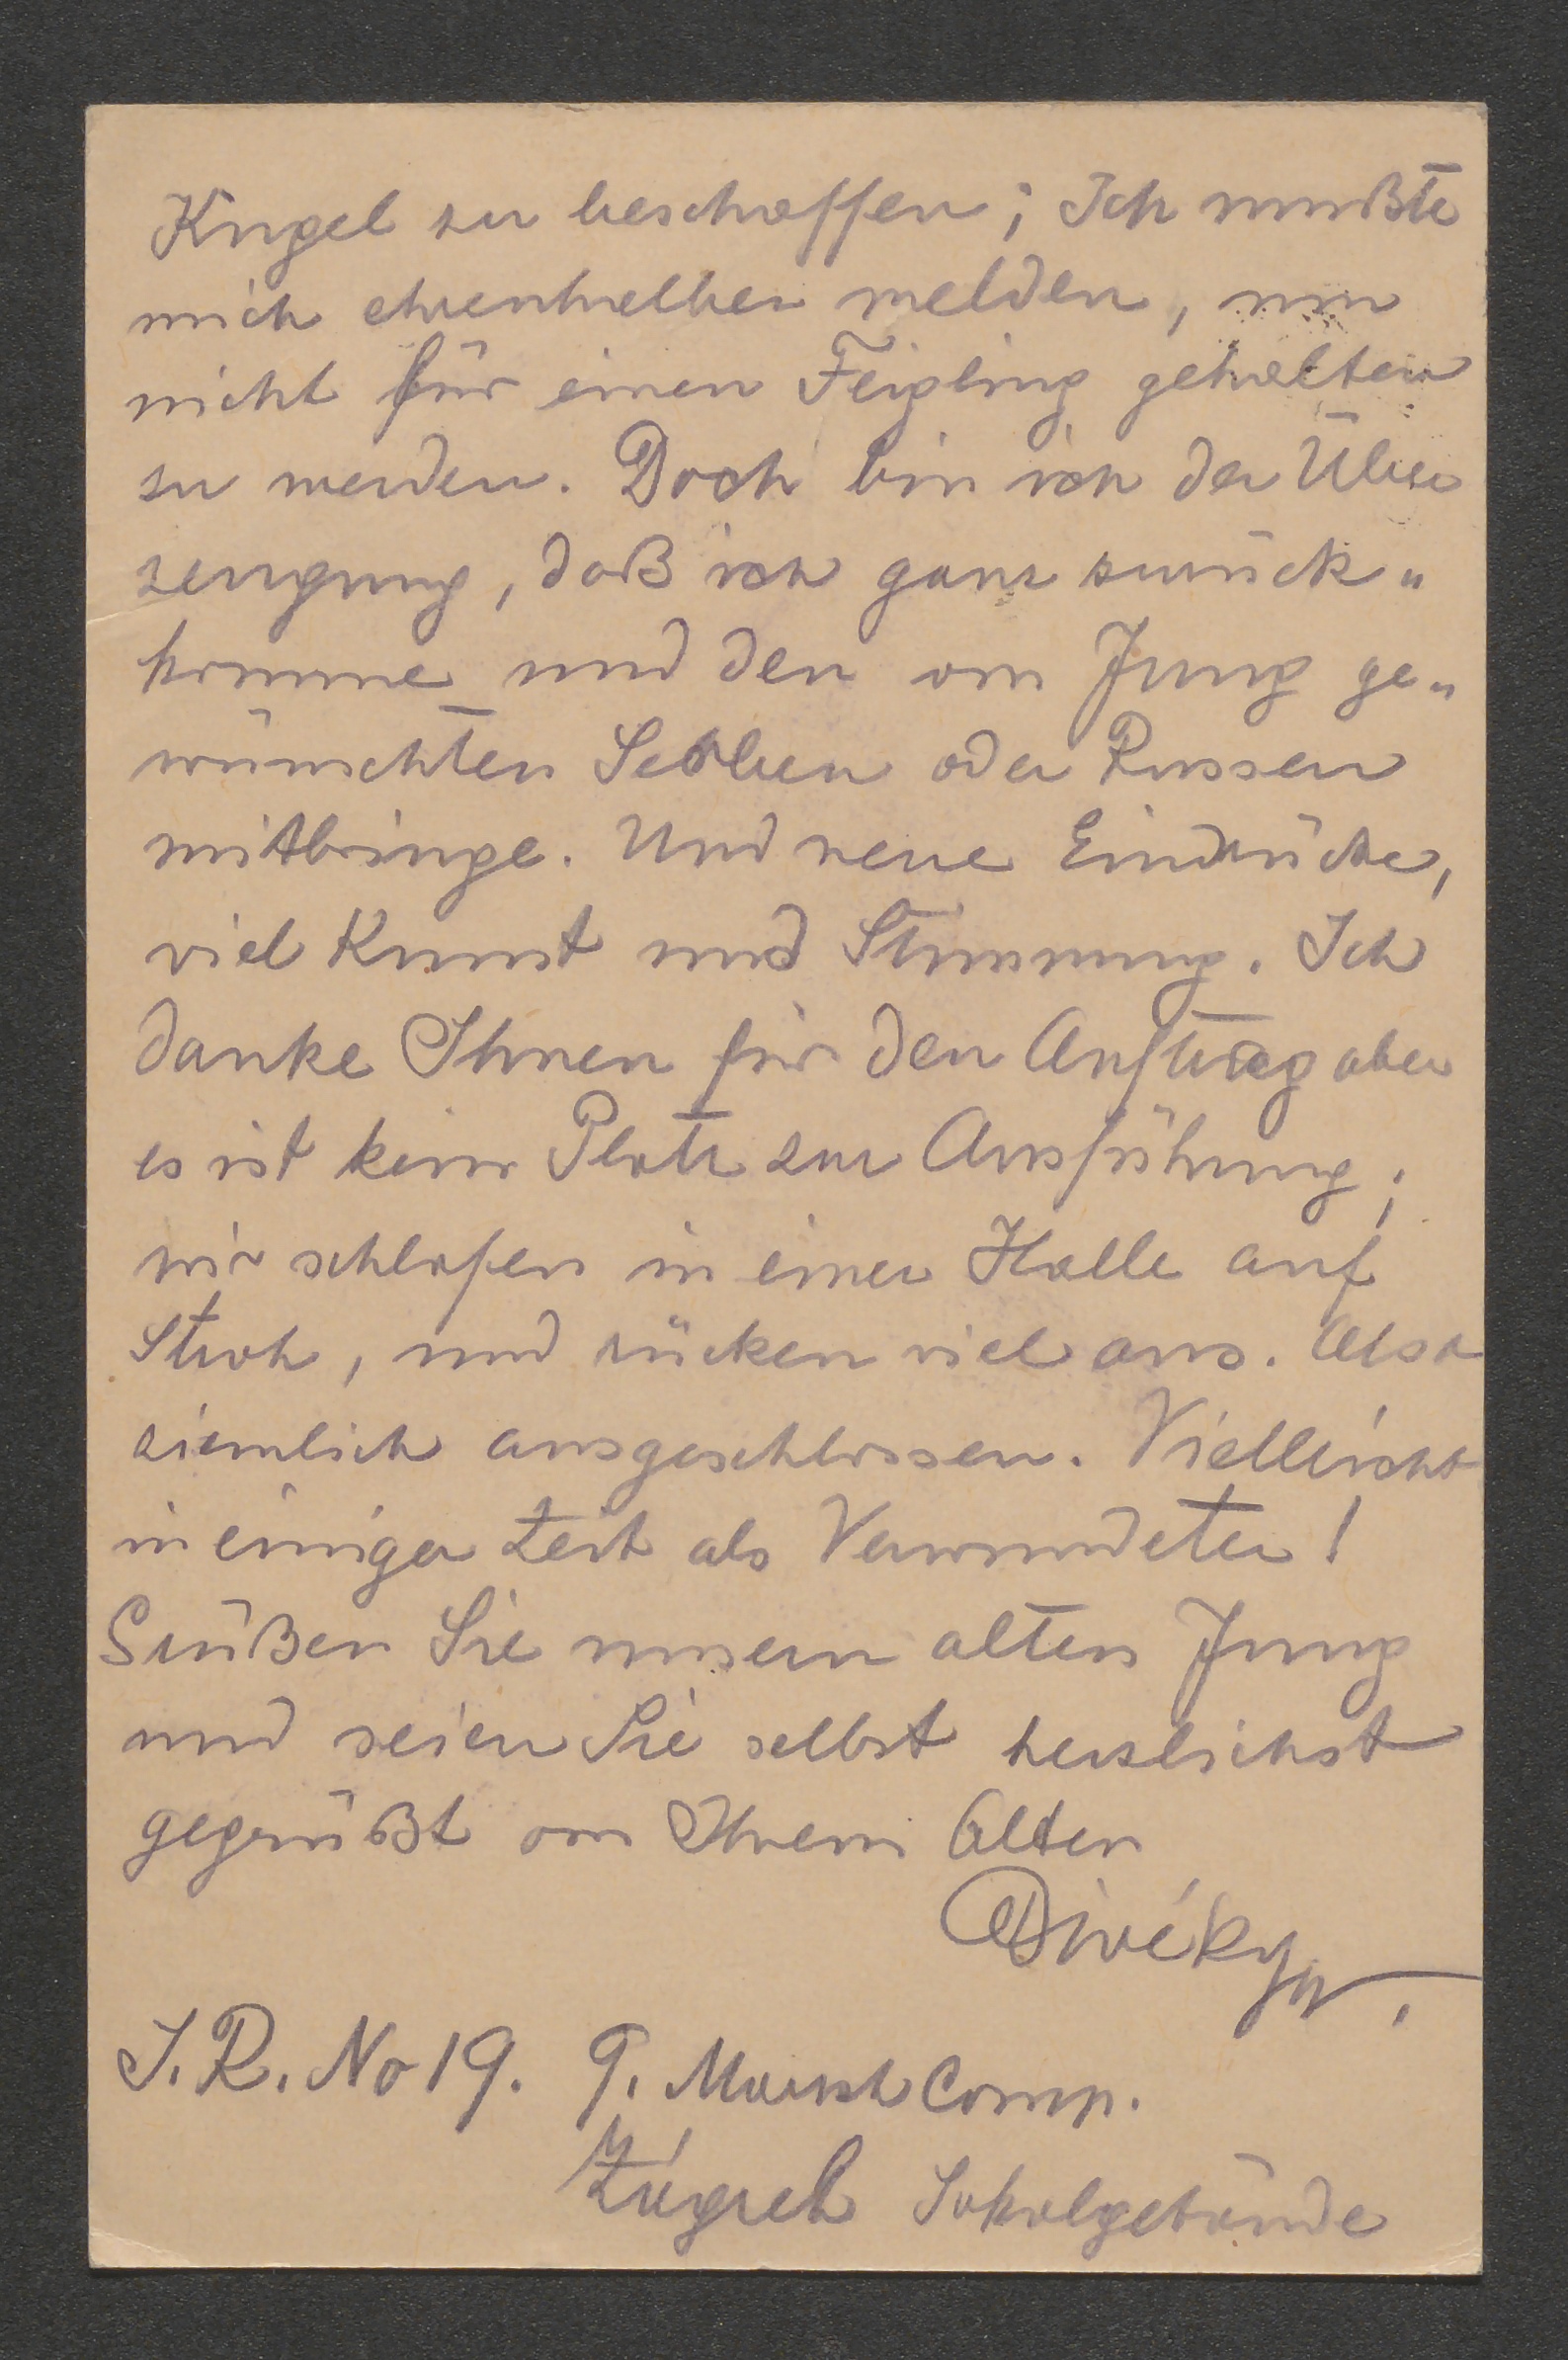 Kugel zu beschaffen; Ich mußte
mich ehrenhalber melden, um
nicht für einen Feigling gehalten
zu werden. Doch bin ich der Über
zeugung, daß ich ganz zurück„
komme und den von Jung ge„
wünschten Serben oder Russen
mitbringe. Und neue Eindrücke,
viel Kunst und Stimmung. Ich
danke Ihnen für den Auftrag aber
es ist kein Platz zur Ausführung;
wir schlafen in einer Halle auf
Stroh, und rücken viel aus. Also
ziemlich ausgeschlossen. Vielleicht
in einiger Zeit als Verwundeter!
Grüßen Sie unsern alten Jung
und seien Sie selbst herzlichst
gegrüßt von Ihrem Alten
Divéky
I. R. No 19. 9. Marsch Comp.
Zágreb Sokolgebäude